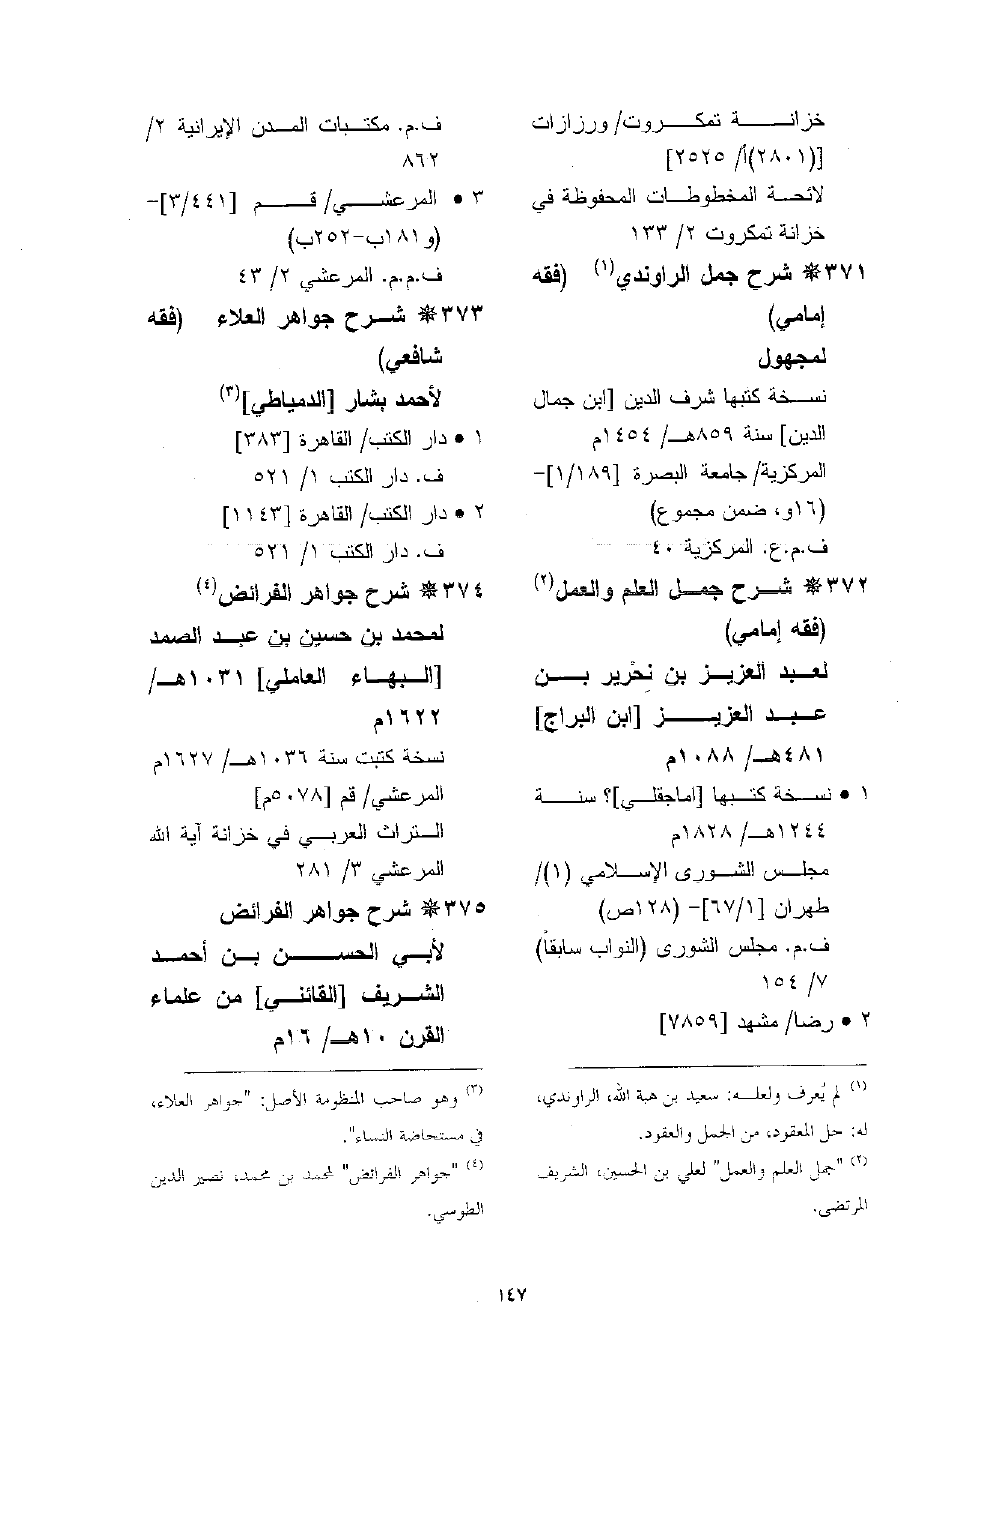 خزانة تمكروت/ ورزازات
[(٢٨٠١)أ/ ٢٥٢٥]
لائحة المخطوطات المحفوظة في
خزانة تمكروت ٢/ ١٣٣
٣٧١* شرح جمل الراوندي(١) (فقه
إمامي)
لمجهول
نسخة كتبها شرف الدين [ابن جمال
الدين] سنة ٨٥٩هـ/ ١٤٥٤م
المركزية/ جامعة البصرة [١/١٨٩]-
(١٦و، ضمن مجموع)
ف.م.ع. المركزية ٤٠
٣٧٢* شرح جمل العلم والعمل(٢)
(فقه إمامي)
لعبد العزيز بن نحْرير بن
عبد العزيز [ابن البراج]
٤٨١هـ/ ١٠٨٨م
١ • نسخة كتبها [اماجقلي]؟ سنة
١٢٤٤هـ/ ١٨٢٨م
مجلس الشورى الإسلامي (١)/
طهران [٦٧/١]- (١٢٨ص)
ف.م. مجلس الشورى (النواب سابقاً)
٧/ ١٥٤
٢ • رضا/ مشهد [٧٨٥٩]
(١) لم يُعرف ولعله: سعيد بن هبة الله، الراوندي،
له: حل المعقود، من الجمل والعقود.
(٢) "جمل العلم والعمل" لعلي بن الحسين، الشريف
المرتضى.
ف.م. مكتبات المدن الإيرانية ٢/
٨٦٢
٣ • المرعشي/ قم [٣/٤٤١]-
(و١٨١ب-٢٥٢ب)
ف.م.م. المرعشي ٢/ ٤٣
٣٧٣* شرح جواهر العلاء (فقه
شافعي)
لأحمد بشار [الدمياطي](٣)
١ • دار الكتب/ القاهرة [٣٨٣]
ف. دار الكتب ١/ ٥٢١
٢ • دار الكتب/ القاهرة [١١٤٣]
ف. دار الكتب ١/ ٥٢١
٣٧٤* شرح جواهر الفرائض(٤)
لمحمد بن حسين بن عبد الصمد
[البهاء العاملي] ١٠٣١هـ/
١٦٢٢م
نسخة كتبت سنة ١٠٣٦هـ/ ١٦٢٧م
المرعشي/ قم [٥٠٧٨م]
التراث العربي في خزانة آية الله
المرعشي ٣/ ٢٨١
٣٧٥* شرح جواهر الفرائض
لأبي الحسن بن أحمد
الشريف [القائني] من علماء
القرن ١٠هـ/ ١٦م
(٣) وهو صاحب المنظومة الأصل: "جواهر العلاء،
في مستحاضة النساء".
(٤) "جواهر الفرائض" لمحمد بن محمد، نصير الدين
الطوسي.
١٤٧